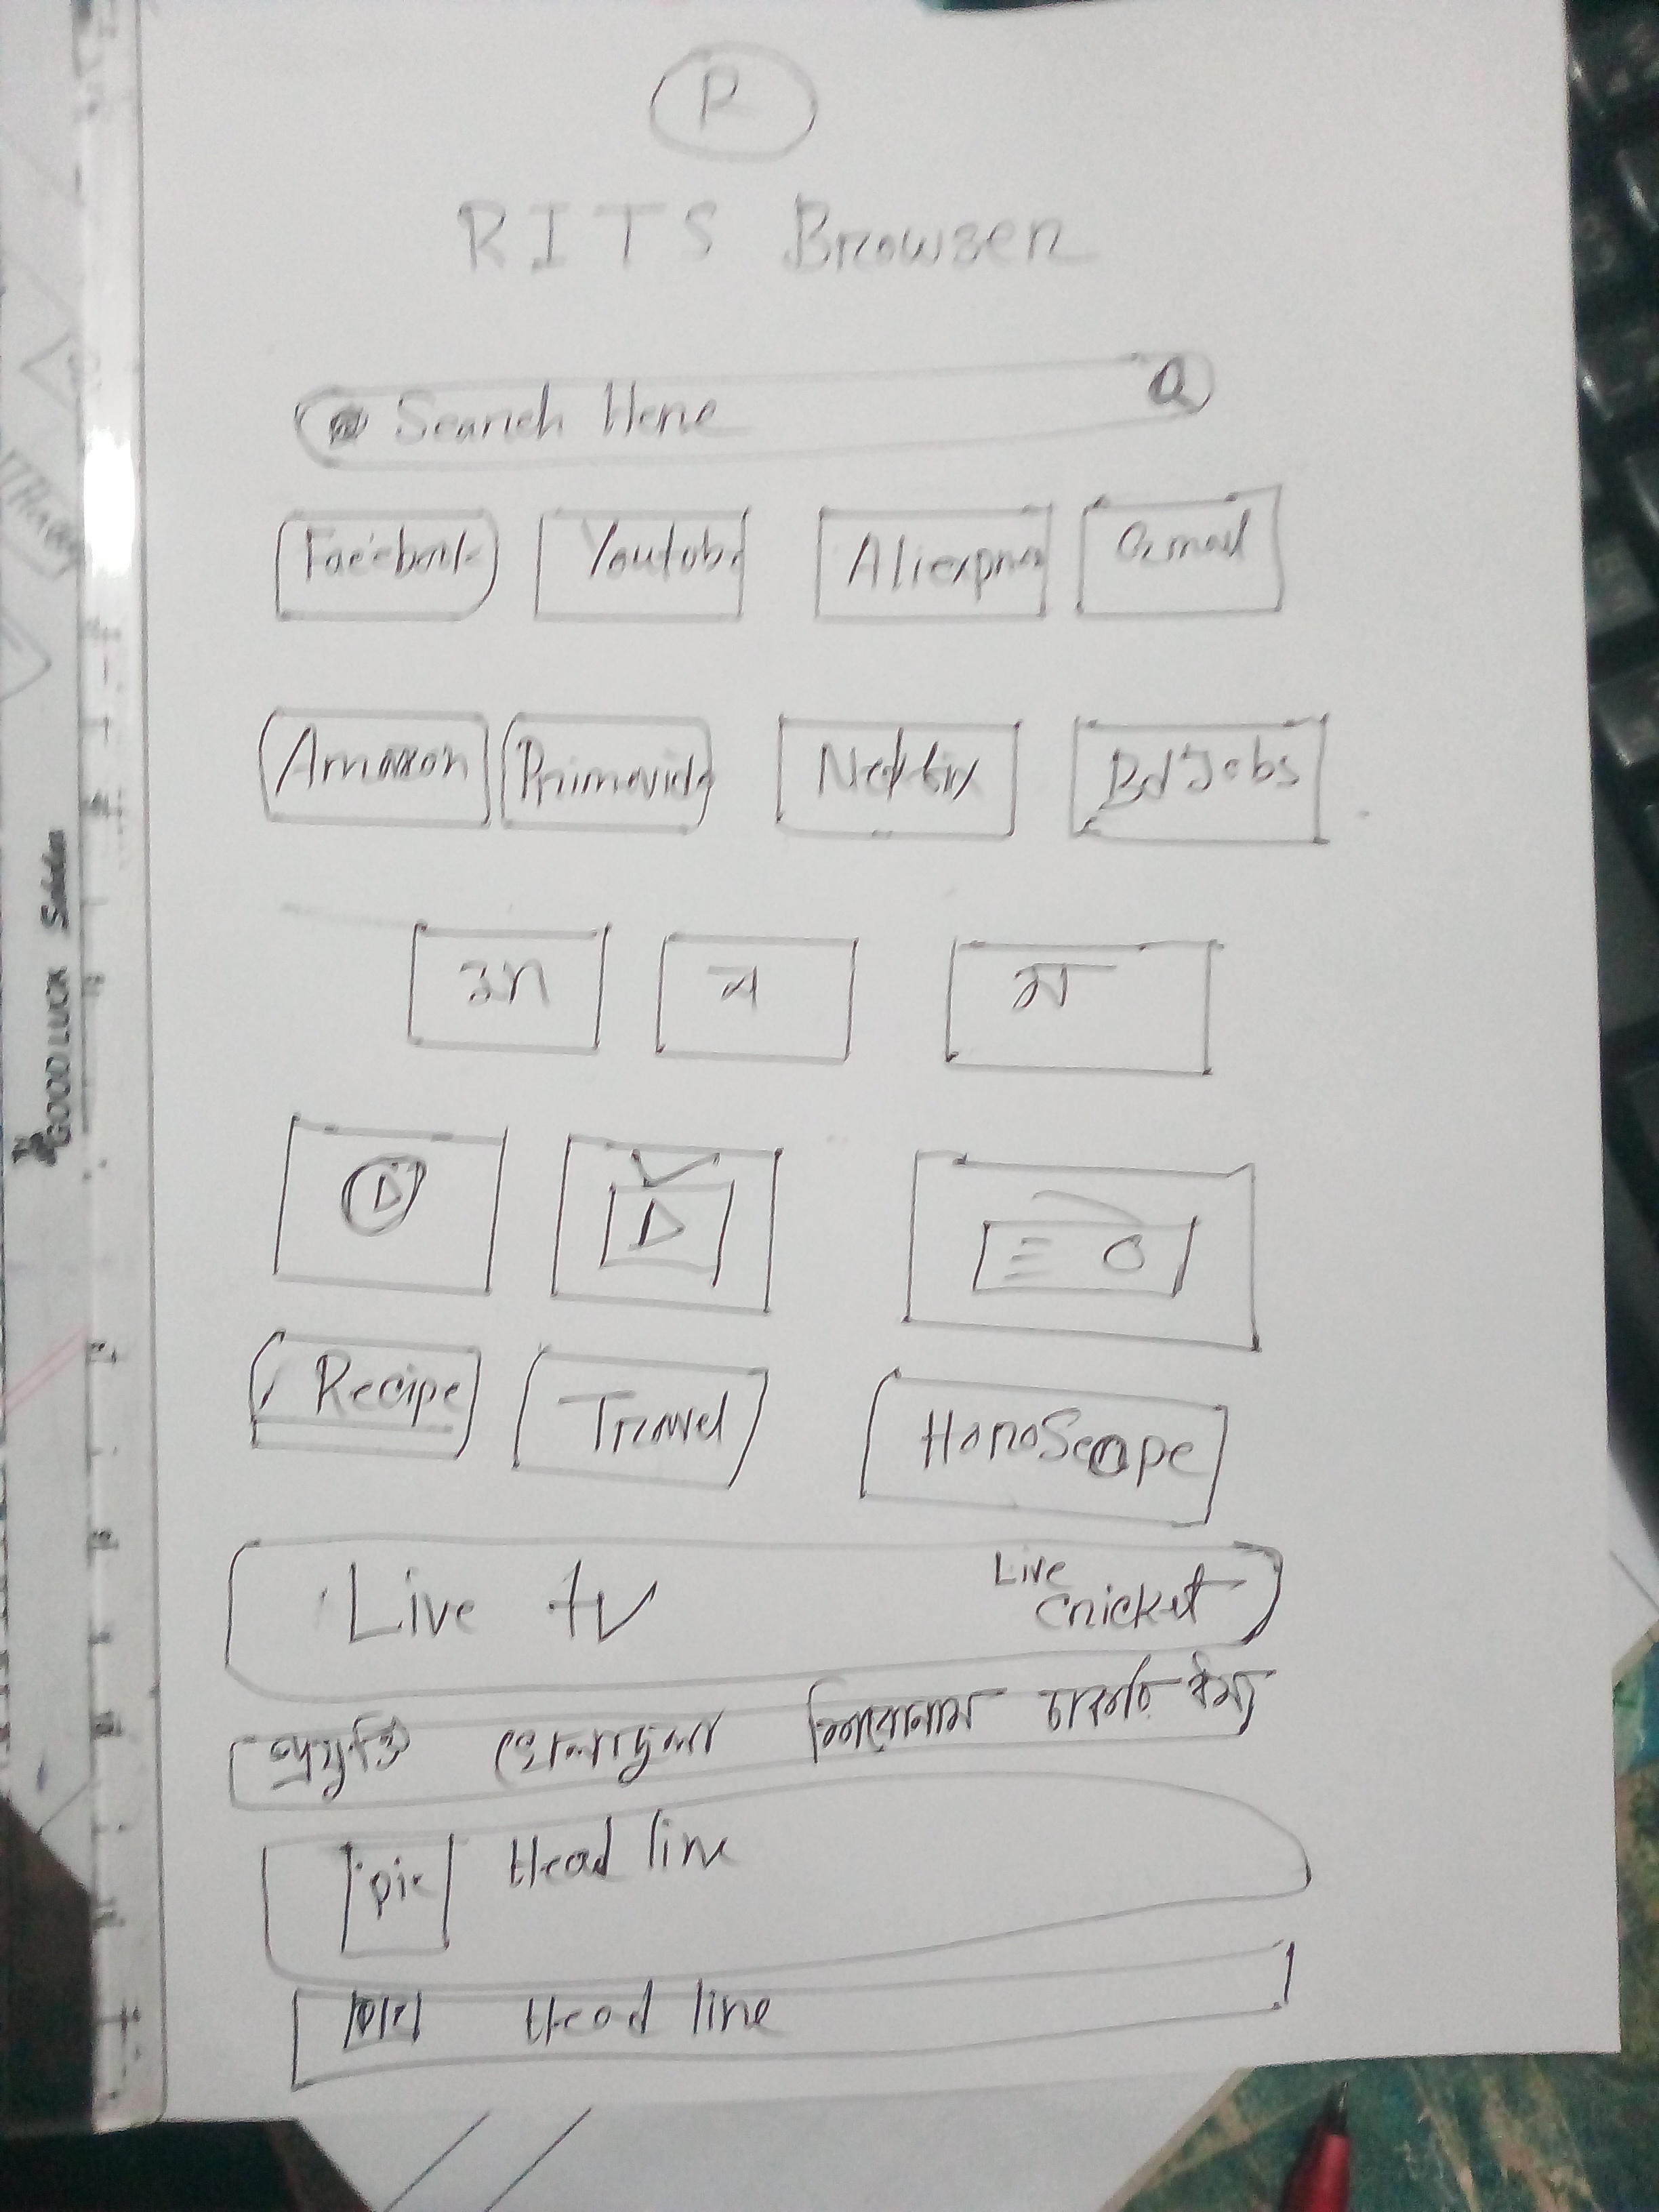 R
RITS Browser
@ Search Here
Facebook Youtube Aliexpres Gmail
Amazon Primevide Netflix Bd Jobs
ন ম
Recipe Travel HoroScope
Live tv Live Cricket
প্রযুক্তি খেলাধুলা শিরোনাম চাকরি ধর্ম
pic Head line
pic Head line
GOODLUCK